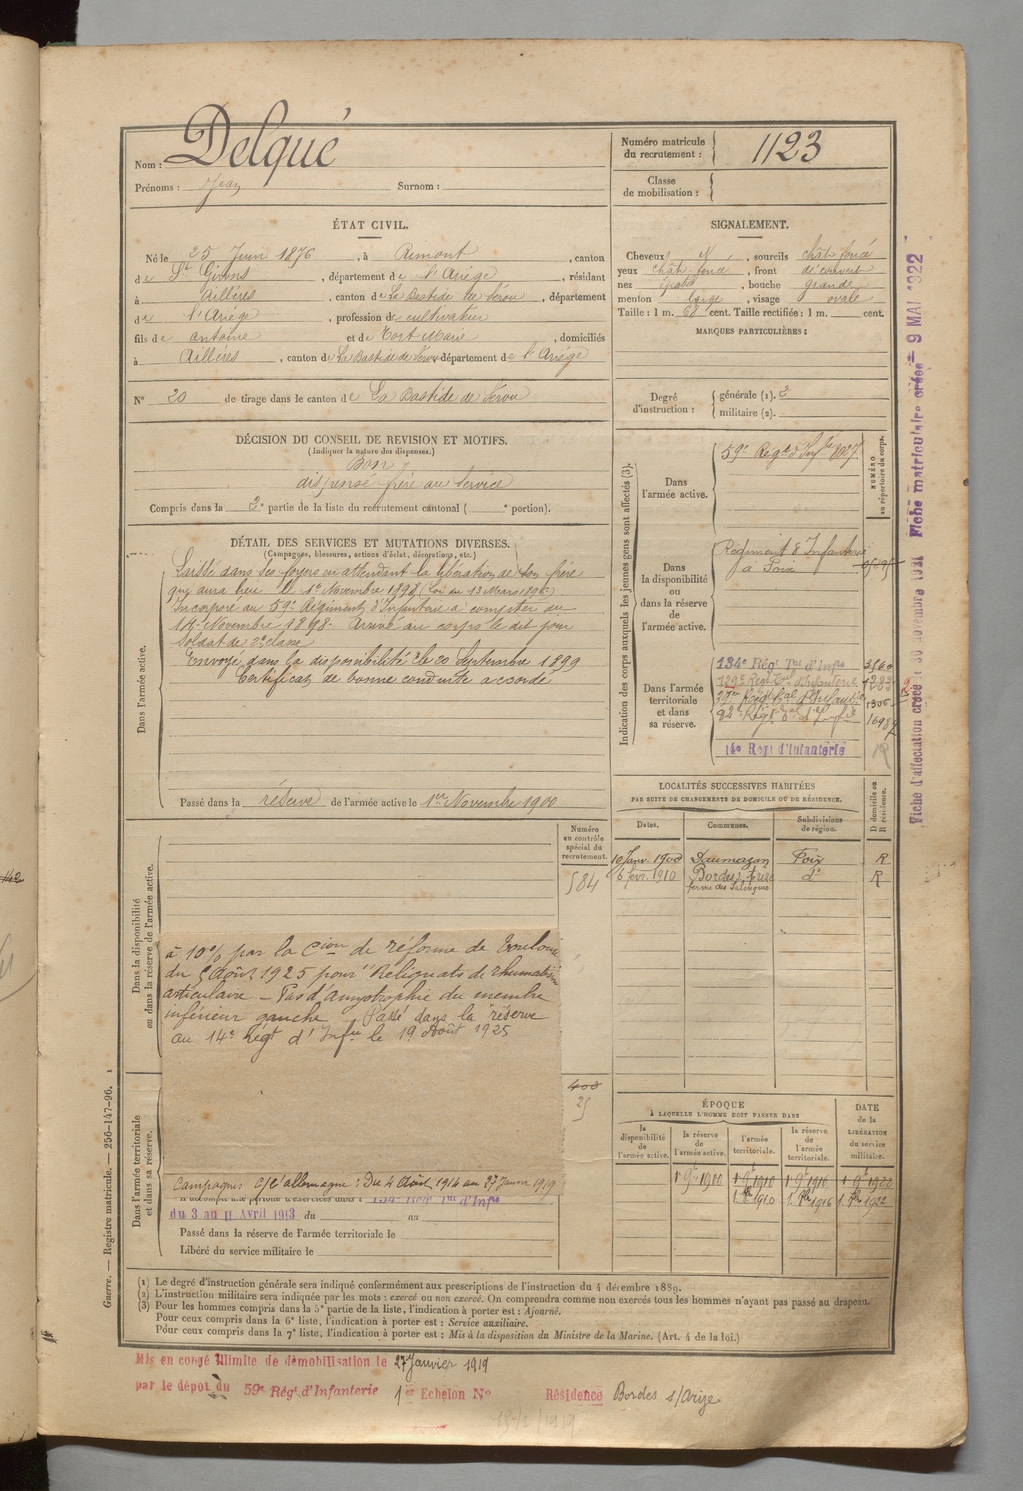 Nom : Delqué
Prénoms : Jean Surnom :
Numéro matricule du recrutement : 1123
Classe de mobilisation :
ÉTAT CIVIL.
Né le 25 Juin 1876, à Rimont, canton
de St Girons, département de l'Ariège, résidant
à Aillères, canton de La Bastide de Sérou, département
de l'Ariège, profession de cultivateur
fils de Antoine et de Tort Marie, domiciliés
à Aillères, canton de La Bastide de Sérou département de l'Ariège
N° 20 de tirage dans le canton de La Bastide de Sérou
SIGNALEMENT.
Cheveux sourcils chât foncé
yeux chât foncé, front découvert
nez gros, bouche grande
menton large, visage ovale
Taille : 1 m. 68 cent. Taille rectifiée : 1 m. cent.
MARQUES PARTICULIÈRES :
Degré d'instruction : générale (1). 3
militaire (2).
DÉCISION DU CONSEIL DE REVISION ET MOTIFS.
(Indiquer la nature des dispenses.)
Bon
dispensé frère au service
Compris dans la 2e partie de la liste du recrutement cantonal ( e portion).
DÉTAIL DES SERVICES ET MUTATIONS DIVERSES.
(Campagnes, blessures, actions d'éclat, décorations, etc.)
Dans l'armée active.
Laissé dans ses foyers en attendant la libération de son frère
qui aura lieu le 1er Novembre 1898 (Loi du 13 Mars 1896)
Incorporé au 59e Régiment d'Infanterie a compter du
14 Novembre 1898. Arrivé au corps le dit jour
Soldat de 2e classe
Envoyé dans la disponibilité le 20 Septembre 1899
Certificat de bonne conduite accordé
Passé dans la réserve de l'armée active le 1er Novembre 1900
Indication des corps auxquels les jeunes gens sont affectés (3).
NUMÉRO au répertoire du corps.
Dans l'armée active.
59e Régt d'Infie
Dans la disponibilité ou dans la réserve de l'armée active.
Régiment d'Infanterie
à Foix
Dans l'armée territoriale et dans sa réserve.
134e Régt Tal d'Infie 3560
129e Régt Tal d'Infanterie 1283
37e Régt Tal d'Infanterie 1306
92e Régt Tal d'Infie
14e Regt d'Infanterie
Fiche d'affectation créée le 30 novembre 1921 Fiche matriculaire créée 9 MAI 1922
LOCALITÉS SUCCESSIVES HABITÉES
PAR SUITE DE CHANGEMENTS DE DOMICILE OU DE RÉSIDENCE.
Dates. Communes. Subdivisions de région. D domicile ou R résidence.
10 Janv. 1900 Daumazan Foix R
6 févr. 1910 Bordes s/Arize do R
Dans la disponibilité ou dans la réserve de l'armée active.
Numéro en contrôle spécial du recrutement.
584
à 10% par la Cion de réforme de Toulouse
du 5 Août 1925 pour "Reliquats de rhumatisme
articulaire - Pas d'amyotrophie du membre
inférieur gauche. Passé dans la réserve
au 14e Régt d'Infie le 19 Août 1925
Dans l'armée territoriale et dans sa réserve.
400
25
Campagnes c/ l'allemagne : Du 4 Août 1914 au 27 janvier 1919
134e Regt Tal d'Infie
du 3 au 11 Avril 1913 du au
Passé dans la réserve de l'armée territoriale le
Libéré du service militaire le
ÉPOQUE
À LAQUELLE L'HOMME DOIT PASSER DANS
la disponibilité de l'armée active. la réserve de l'armée active. l'armée territoriale. la réserve de l'armée territoriale. DATE de la LIBÉRATION du service militaire.
1er 9bre 1900 1er 9bre 1910 1er 9bre 1916 1er 9bre 1922
1er 8bre 1910 1er 8bre 1916 1er 8bre 1922
(1) Le degré d'instruction générale sera indiqué conformément aux prescriptions de l'instruction du 4 décembre 1889.
(2) L'instruction militaire sera indiquée par les mots : exercé ou non exercé. On comprendra comme non exercés tous les hommes n'ayant pas passé au drapeau.
(3) Pour les hommes compris dans la 5e partie de la liste, l'indication à porter est : Ajourné.
Pour ceux compris dans la 6e liste, l'indication à porter est : Service auxiliaire.
Pour ceux compris dans la 7e liste, l'indication à porter est : Mis à la disposition du Ministre de la Marine. (Art. 4 de la loi.)
Guerre. — Registre matricule. — 256-147-96. 1
Mis en congé illimité de démobilisation le 27 Janvier 1919
par le dépôt du 59e Régt d'Infanterie 1er Echelon N° Résidence Bordes s/Arize